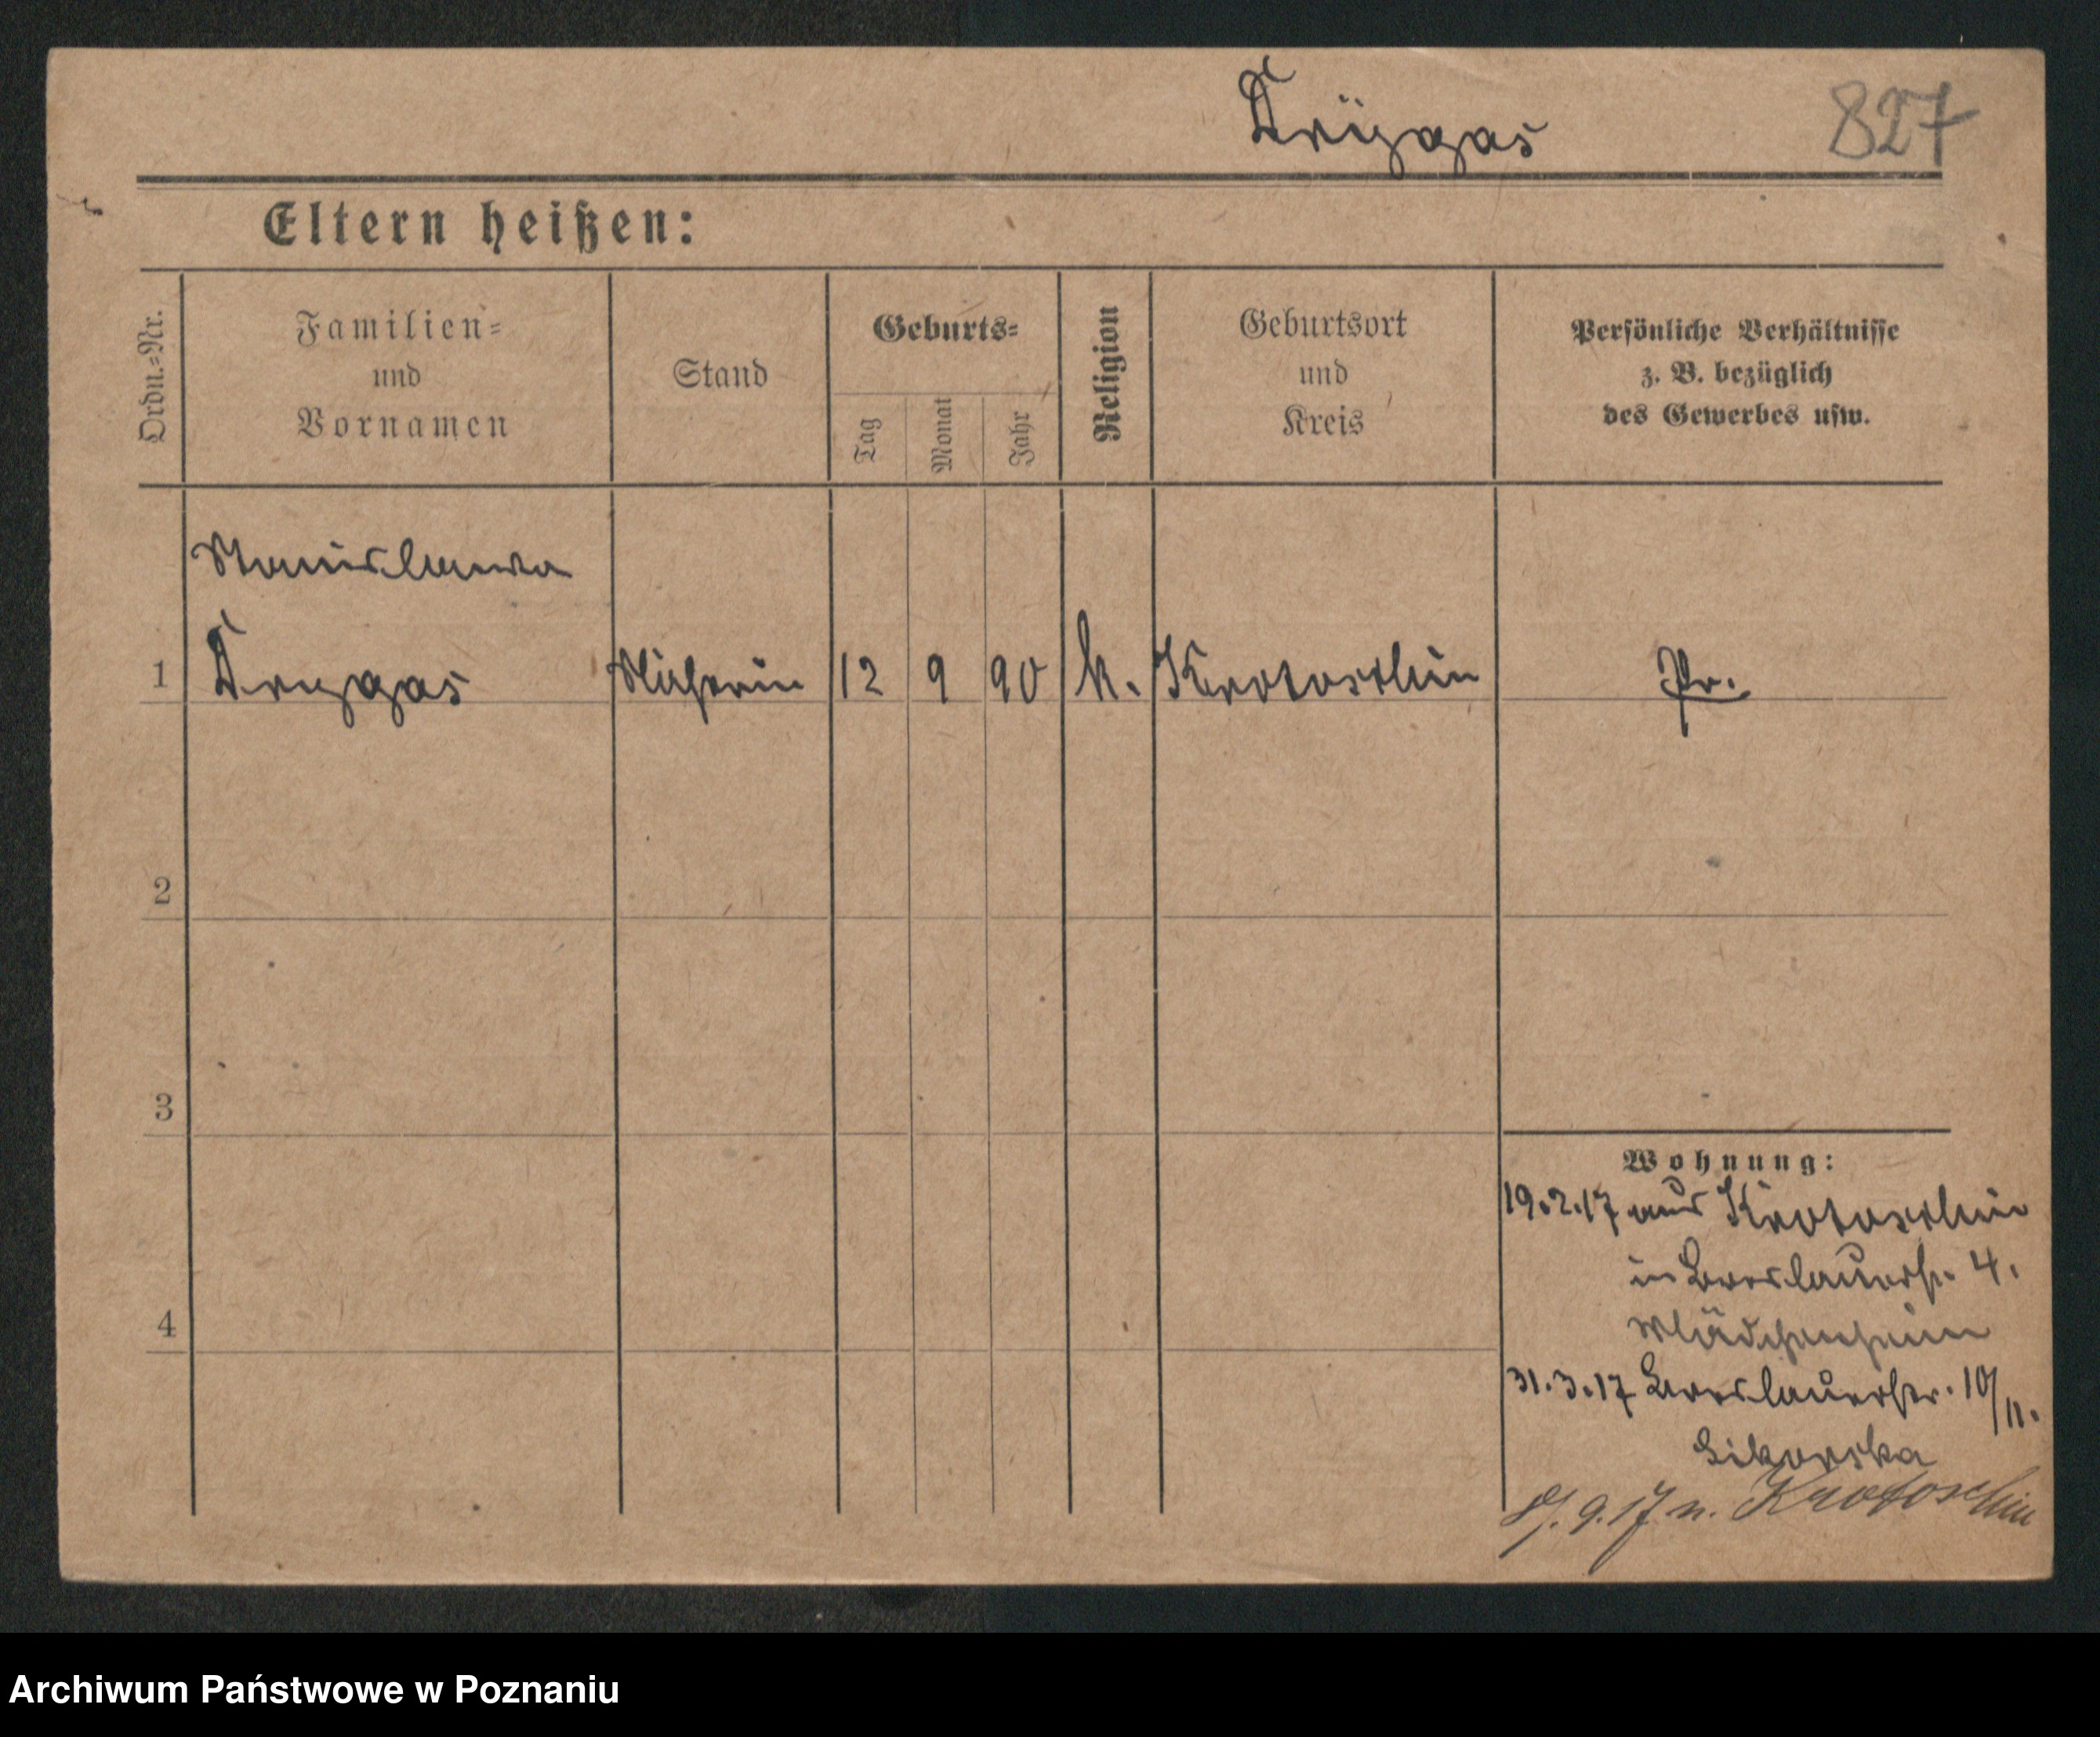 Drÿgas 827
Eltern heißen:
Ordn.=Nr.
Familien=
und
Vornamen
Stand
Geburts=
Tag
Monat
Jahr
Religion
Geburtsort
und
Kreis
Persönliche Verhältnisse
z. B. bezüglich
des Gewerbes usw.
Stanislawa
1 Drygas Näherin 12 9 90 k. Krotoschin Pr.
2
3
4
Wohnung:
19.2.17 aus Krotoschin
in Breslauerstr. 4.
Mädchenheim
31.3.17 Breslauerstr. 10/11.
Sikorska
9.17 n. Krotoschin
Archiwum Państwowe w Poznaniu